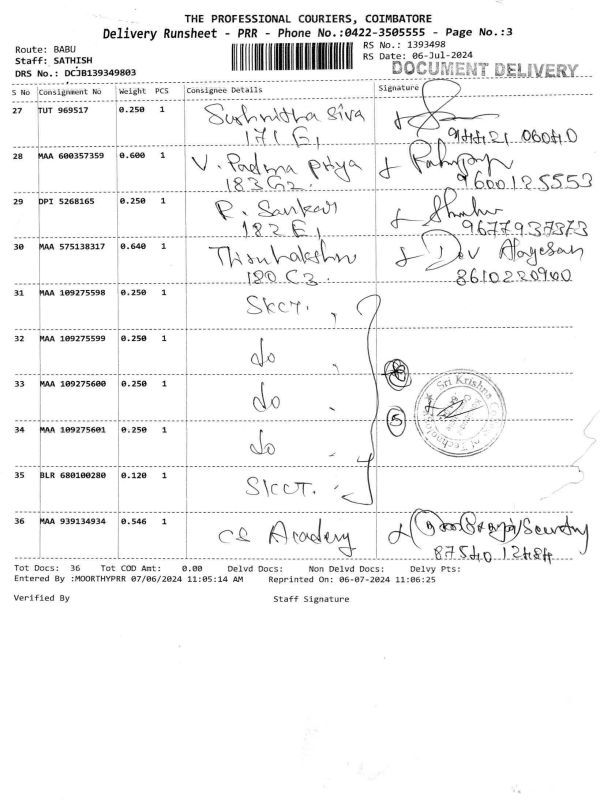 THE PROFESSIONAL COURIERS, COIMBATORE
Delivery Runsheet - PRR - Phone No.:0422-3505555 - Page No.:3
Route: BABU
RS No.: 1393498
Staff: SATHISH
RS Date: 06-Jul-2024
DRS No.: DCJB139349803
DOCUMENT DELIVERY
S No Consignment No Weight PCS Consignee Details Signature
27 TUT 969517 0.250 1 Sushmitha Siva
171 E1 94421 06040
28 MAA 600357359 0.600 1 V. Padma Priya
183 G2. 9600125553
29 DPI 5268165 0.250 1 R. Sankar
182 E1 9677937373
30 MAA 575138317 0.640 1
180 C3. 8610220900
31 MAA 109275598 0.250 1 SKCT. ,,
32 MAA 109275599 0.250 1 do ,,
33 MAA 109275600 0.250 1 do ,,
34 MAA 109275601 0.250 1 do ,,
5
Sri Krishna College of Technology
35 BLR 680100280 0.120 1 SKCT.
36 MAA 939134934 0.546 1 CS Academy Security
87540 12484
Tot Docs: 36 Tot COD Amt: 0.00 Delvd Docs: Non Delvd Docs: Delvy Pts:
Entered By :MOORTHYPRR 07/06/2024 11:05:14 AM Reprinted On: 06-07-2024 11:06:25
Verified By Staff Signature